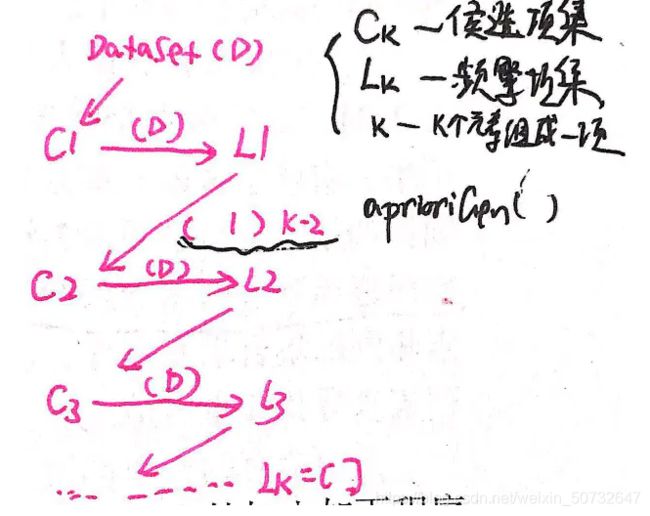 DataSet (D)
Ck — 候选项集
Lk — 频繁项集
K — K个元素组成一项
C1 (D) L1
aprioriGen( )
( ) K-2
C2 (D) L2
C3 (D) L3
Lk = [ ]
https://blog.csdn.net/weixin_50732647